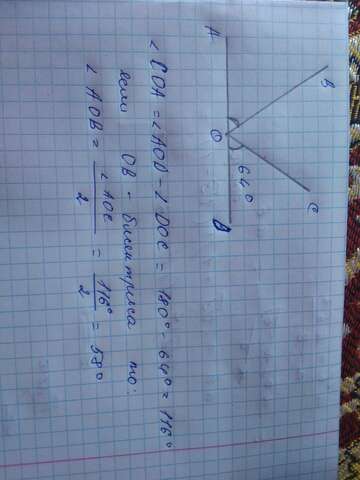 B
C
A
O
64°
D
∠COA = ∠AOD - ∠DOC = 180° - 64° = 116°
если OB - биссектриса то:
∠AOB = ∠AOC / 2 = 116° / 2 = 58°